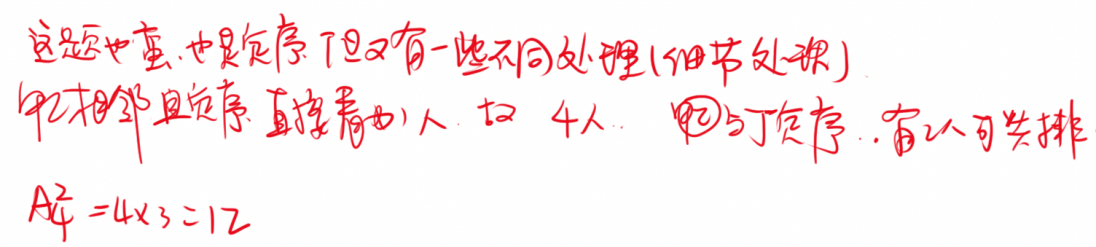 这题也蛮.也是定序.但又有一些不同处理(细节处理)
甲乙相邻且定序.直接看为1人.故 4人.. 甲乙与丁定序..有2人可先排.
A₄² =4×3=12